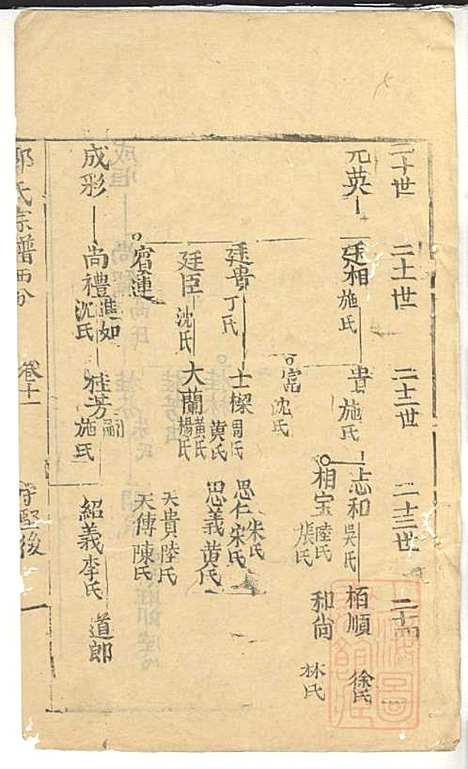 二十世
二十一世
二十二世
二十三世
二十四
元英
廷相 施氏
貴 施氏
志和 吳氏
栢順 徐氏
相宝 陸氏 張氏
和尚 林氏
富 沈氏
廷貴 丁氏
士樑 周氏 黃氏
思仁 宋氏 朱氏
廷臣 沈氏
大蘭 黃氏 楊氏
思義 黃氏
天貴 陸氏
天傳 陳氏
成彩
尚禮 進如 沈氏
桂芳 嗣 施氏
紹義 李氏
道郎
氏宗譜西分
卷十一
後
一